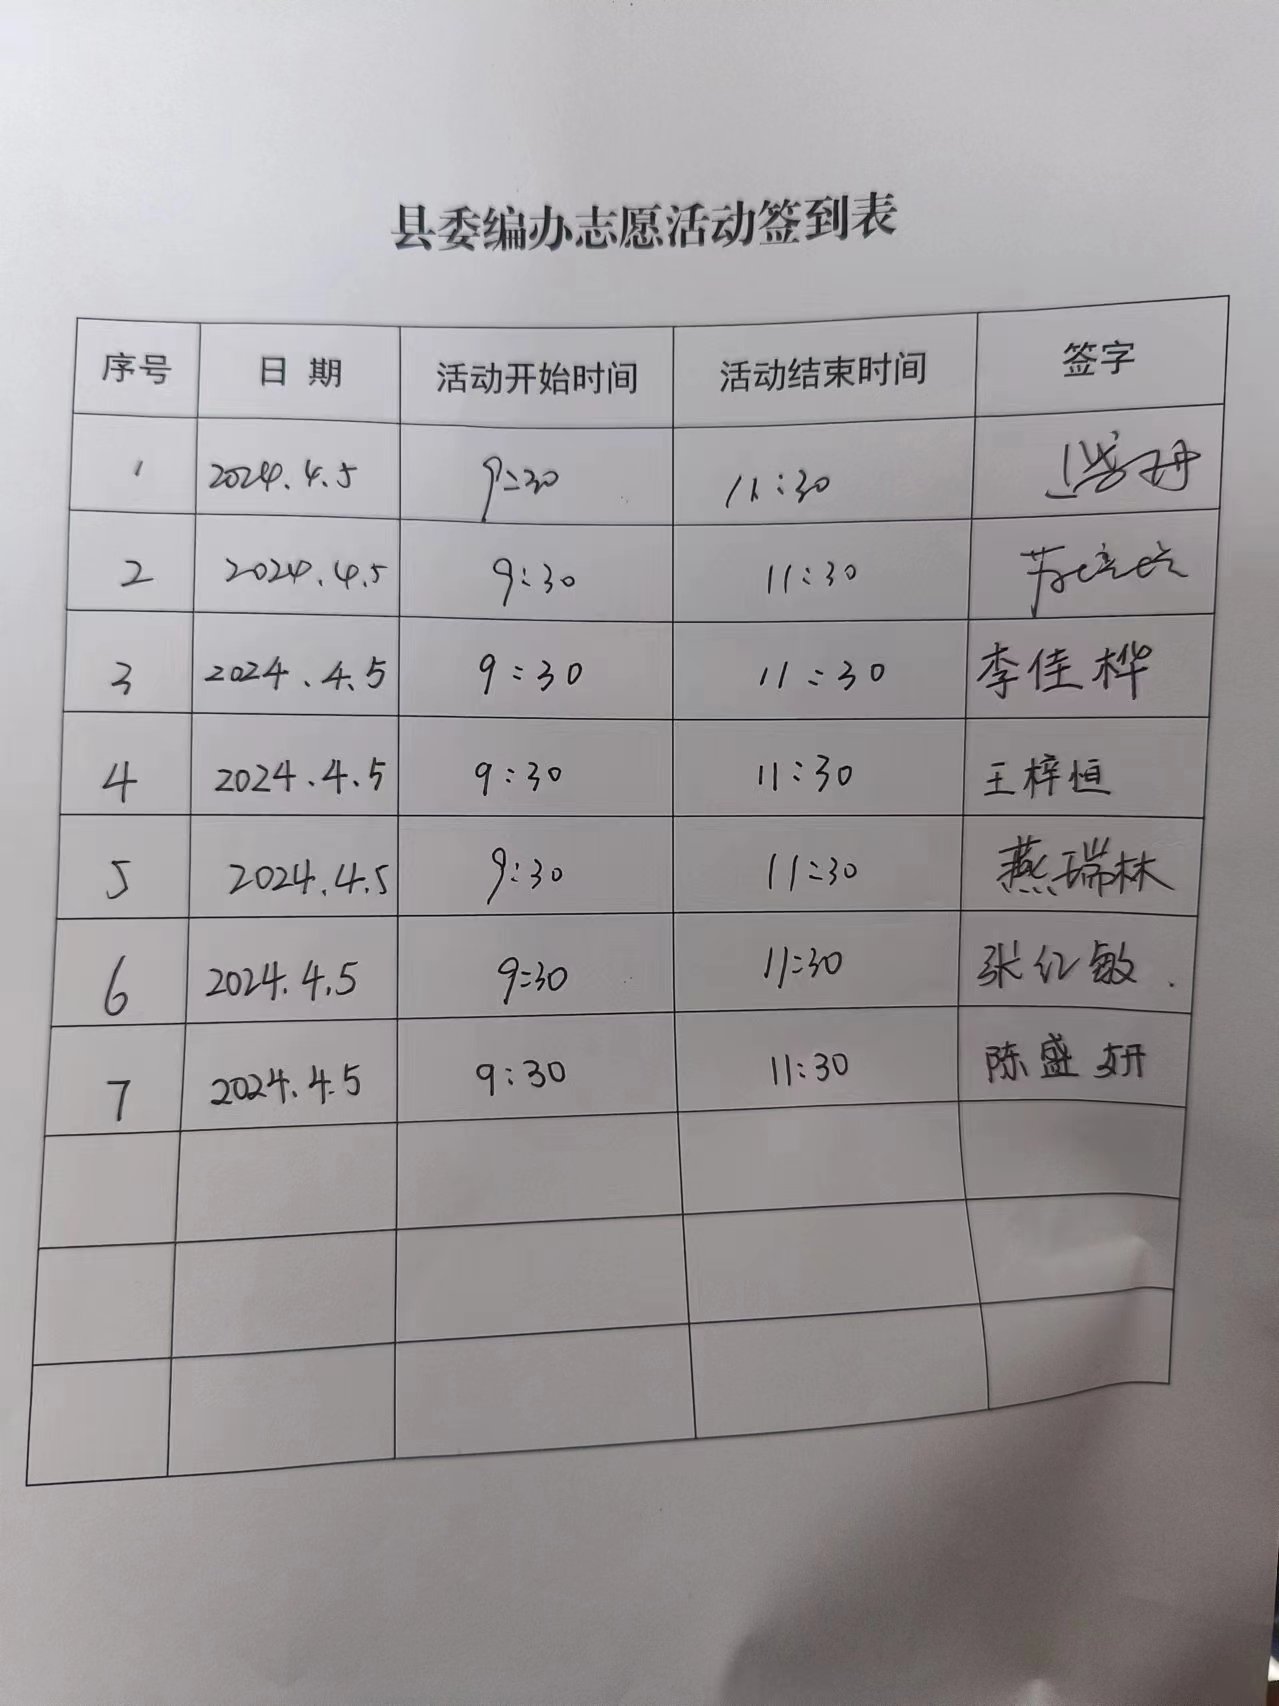 县委编办志愿活动签到表
序号 日期 活动开始时间 活动结束时间 签字
1 2024.4.5 9:30 11:30
2 2024.4.5 9:30 11:30
3 2024.4.5 9:30 11:30 李佳桦
4 2024.4.5 9:30 11:30 王梓恒
5 2024.4.5 9:30 11:30 燕瑞林
6 2024.4.5 9:30 11:30 张红敏
7 2024.4.5 9:30 11:30 陈盛妍